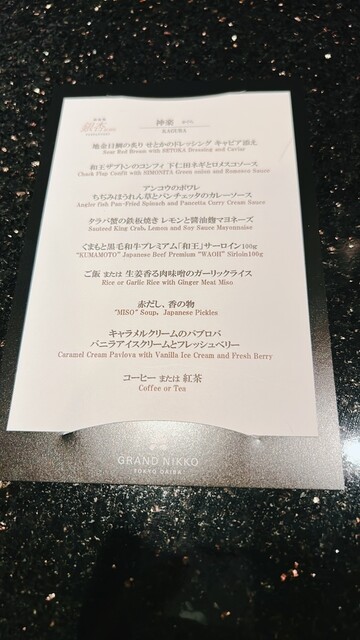 銀杏
神楽
KAGURA
地金目鯛の炙り せとかのドレッシング キャビア添え
Sear Red Bream with SETOKA Dressing and Caviar
和王ザブトンのコンフィ 下仁田ネギとロメスコソース
Chuck Flap Confit with SIMONITA Green onion and Romesco Sauce
アンコウのポワレ
ちぢみほうれん草とパンチェッタのカレーソース
Angler fish Pan-Fried Spinach and Pancetta Curry Cream Sauce
タラバ蟹の鉄板焼き レモンと醤油麹マヨネーズ
Sauteed King Crab, Lemon and Soy Sauce Mayonnaise
くまもと黒毛和牛プレミアム「和王」サーロイン100g
"KUMAMOTO" Japanese Beef Premium "WAOH" Sirloin100g
ご飯 または 生姜香る肉味噌のガーリックライス
Rice or Garlic Rice with Ginger Meat Miso
赤だし、香の物
"MISO" Soup, Japanese Pickles
キャラメルクリームのパブロバ
バニラアイスクリームとフレッシュベリー
Caramel Cream Pavlova with Vanilla Ice Cream and Fresh Berry
コーヒー または 紅茶
Coffee or Tea
GRAND NIKKO
TOKYO DAIBA